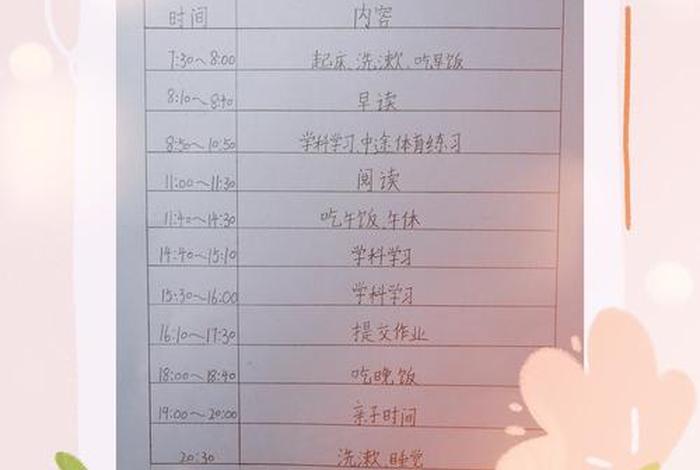 时间 内容
7:30～8:00 起床、洗漱、吃早饭
8:10～8:40 早读
8:50～10:50 学科学习、中途体育练习
11:00～11:30 阅读
11:40～14:30 吃午饭、午休
14:40～15:10 学科学习
15:30～16:00 学科学习
16:10～17:30 提交作业
18:00～18:40 吃晚饭
19:00～20:00 亲子时间
20:30 洗漱、睡觉